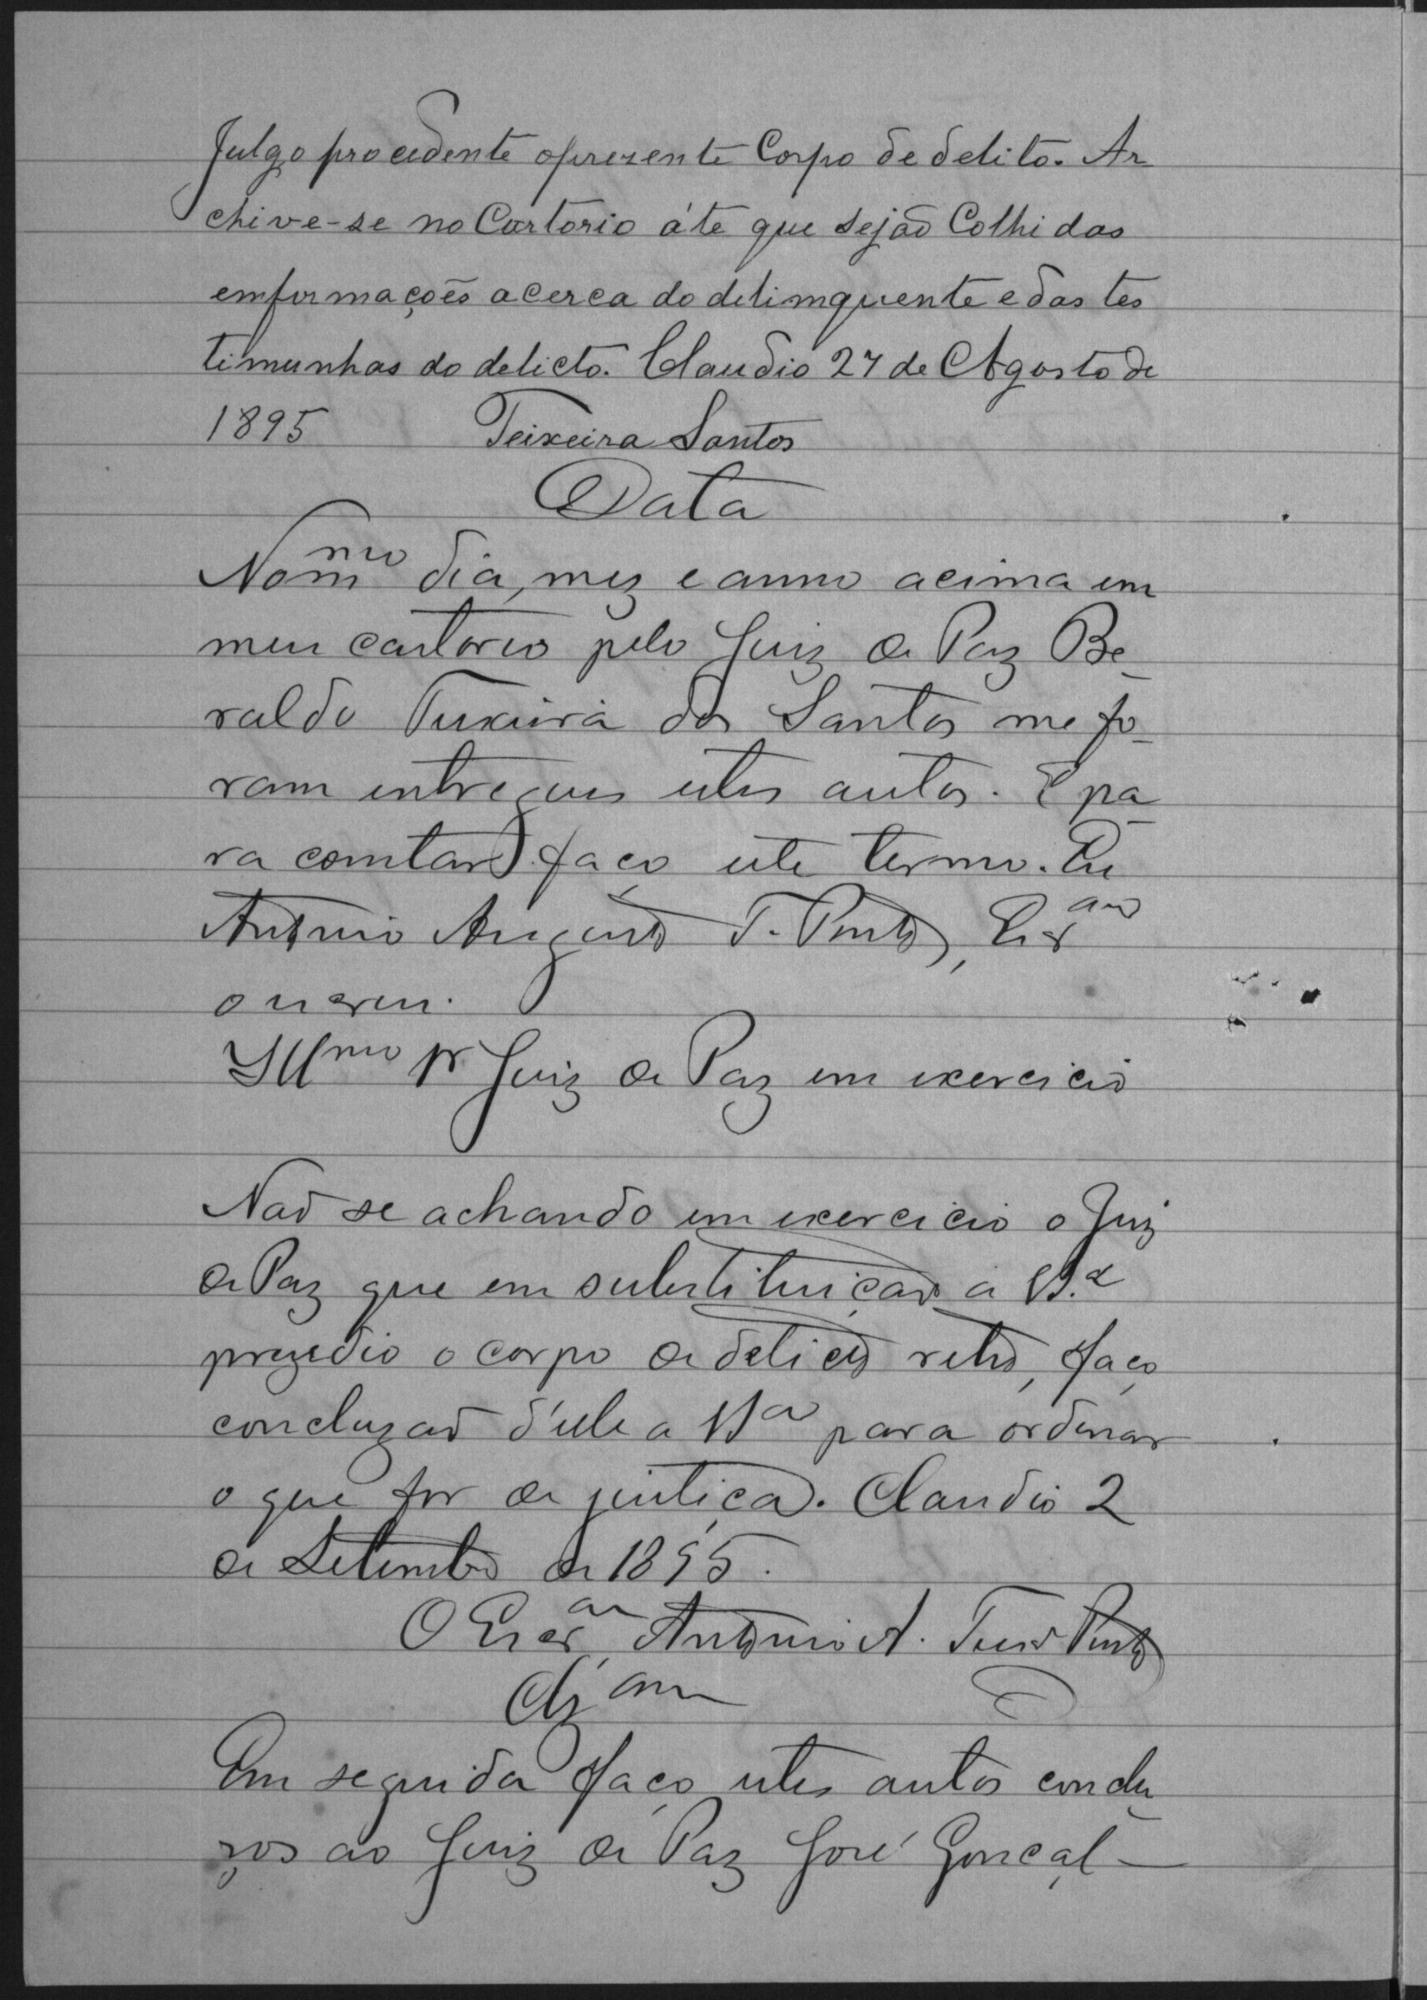 Julgo procedente o prezente Corpo de delito. Ar
chive-se no Cartorio áte que sejão Colhidas
emformações acerca do delimquente e das tes
timunhas do delicto. Claudio 27 de Agosto de
1895 Teixeira Santos
Data
No mmo dia, mez e anno acima em
meu cartorio pelo Juiz de Paz Be-
raldo Teixeira dos Santos me fo-
ram entregues estes autos. E pa-
ra constar faço este termo. Eu
Antonio Augusto T. Pinto, Escram
o escrevi.
Illmo Sr Juiz de Paz em exercicio
Não se achando em exercicio o Juiz
de Paz que em substituição a VS.a
prezedio o corpo de delicto retro, faço
concluzão d'elle a VSa para ordenar
o que for de justiça. Claudio 2
de Setembro de 1895.
O Escram Antonio A. Pinto
Clzam
Em seguida faço estes autos conclu
zos ao Juiz de Paz José Gonçal-